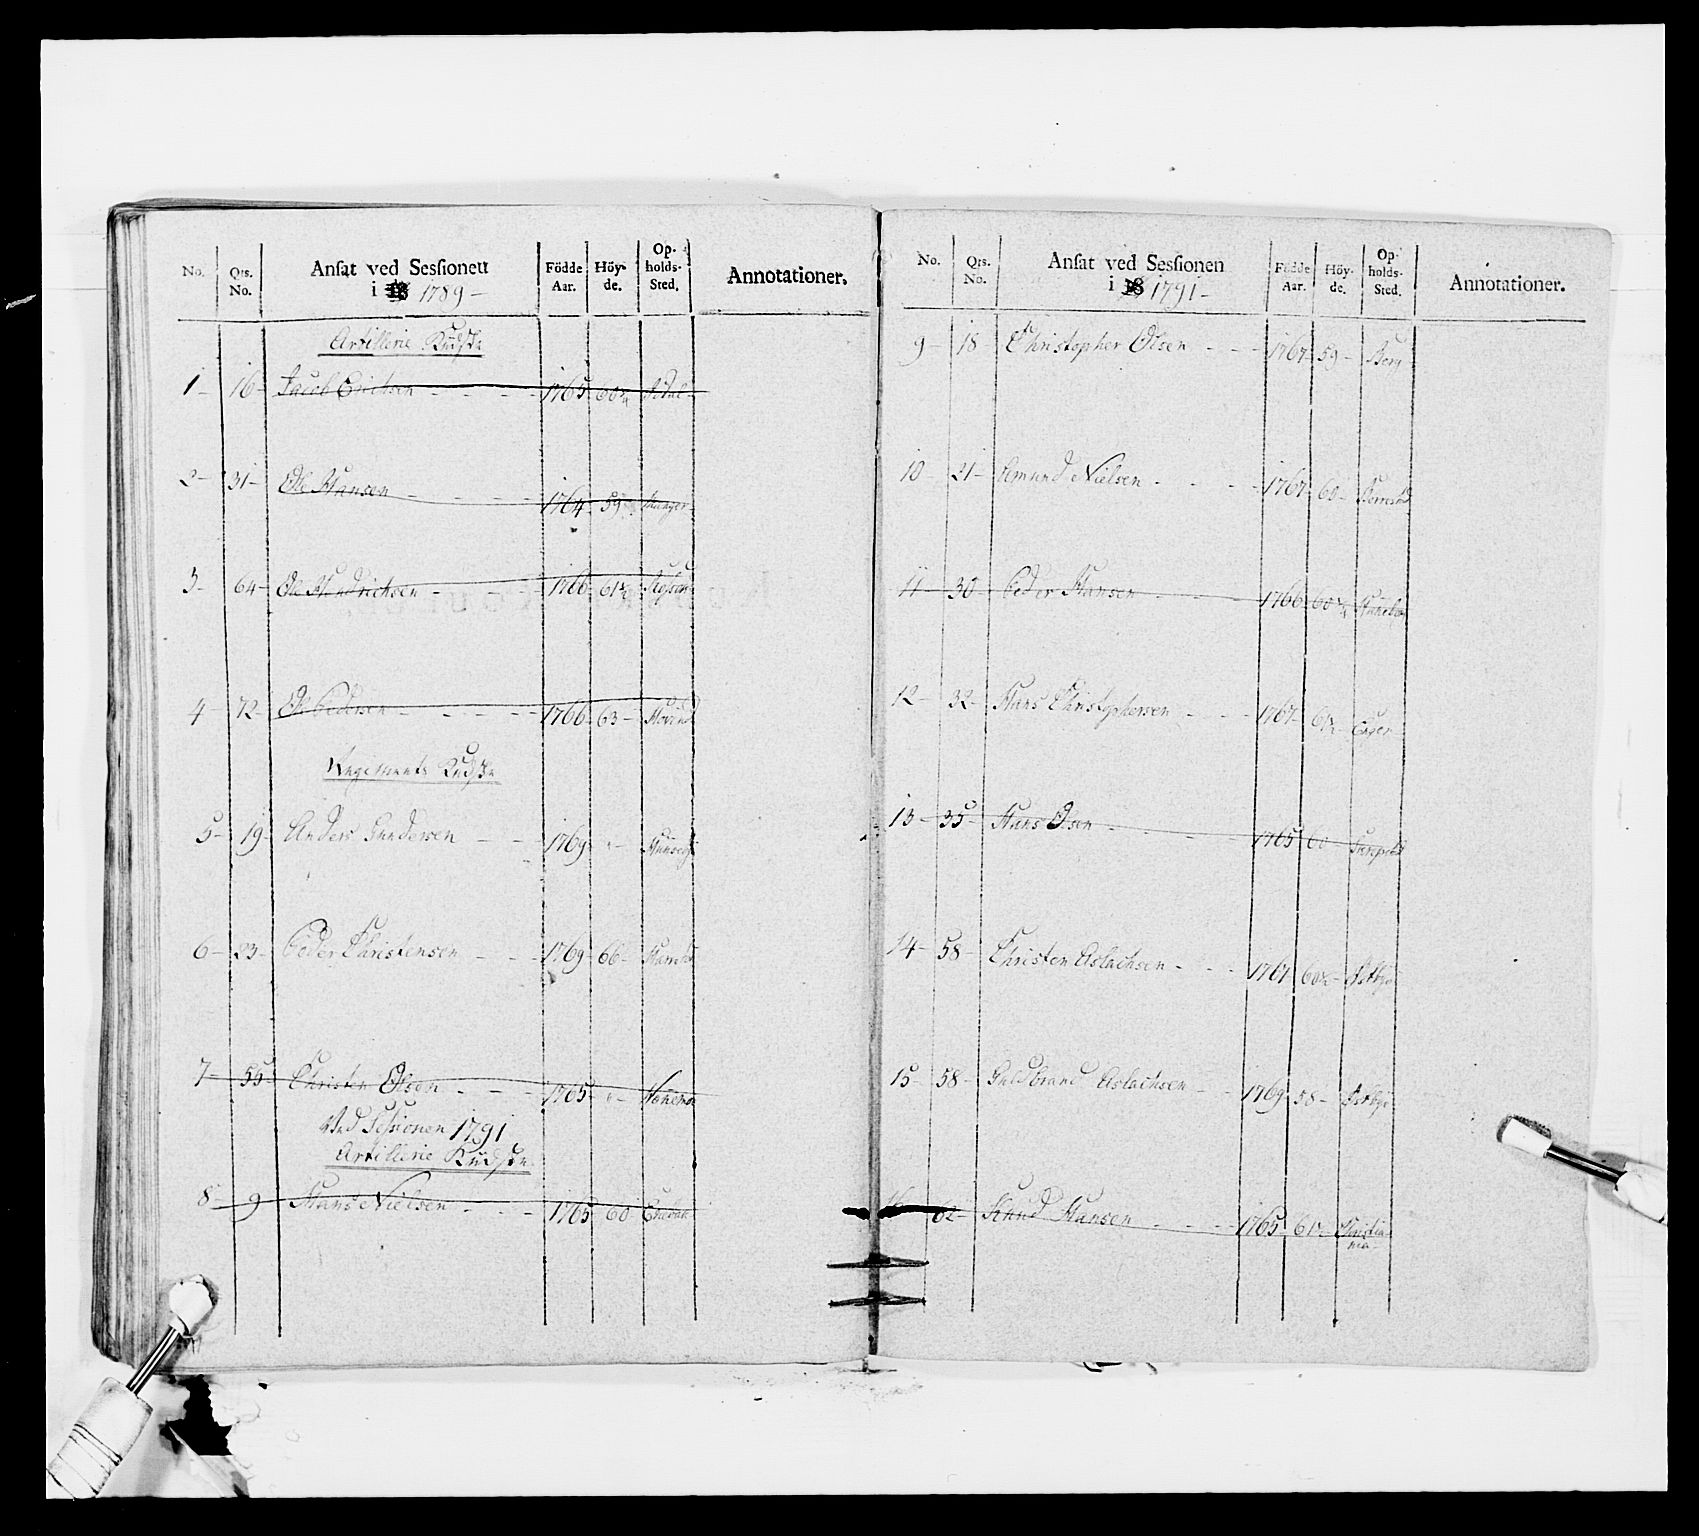 No. Qrs. No. Ansat ved Sessionen i 18 1789 - Födde Aar. Höy- de. Op- holds- Sted. Annotationer.
Artillerie Kudske
1 - 16 - Jacob Erichsen - - - - 1765
2 - 31 - Ole Hansen - - - - 1764 - 59
3 - 64 - Ole Hendrichsen - - - - 1766 - 61½
4 - 72 - Ole Pedersen - - - - 1766 - 63 -
Regiments Kudske
5 - 19 - Anders Gundersen - - - 1769 - " -
6 - 23 - Peder Christensen - - - 1769 - 66 -
7 - 55 - Christen Olsen - - - 1765 - " -
Ved Sessionen 1791
Artillerie Kudske
8 - 9 - Hans Nielsen - - - 1765 - 60
No. Qrs. No. Ansat ved Sessionen i 18 1791 - Födde Aar. Höy- de. Op- holds- Sted. Annotationer.
9 - 18 - Christopher Olsen - - - 1767 - 59 - Berg
10 21 - Amund Nielsen - - - - 1767 - 60 -
11 - 30 - Peder Hansen - - - 1766 - 60
12 - 32 - Hans Christophersen - - - 1767 - 61½ -
13 - 35 - Hans Olsen - - - 1765 60 -
14 - 58 - Christen Aslachsen - - - 1767
15 - 58 - Guldbrand Aslachsen - - 1769 - 58 - Østbye
16 62 - Knud Hansen - - - - 1765 - Christia-
nia